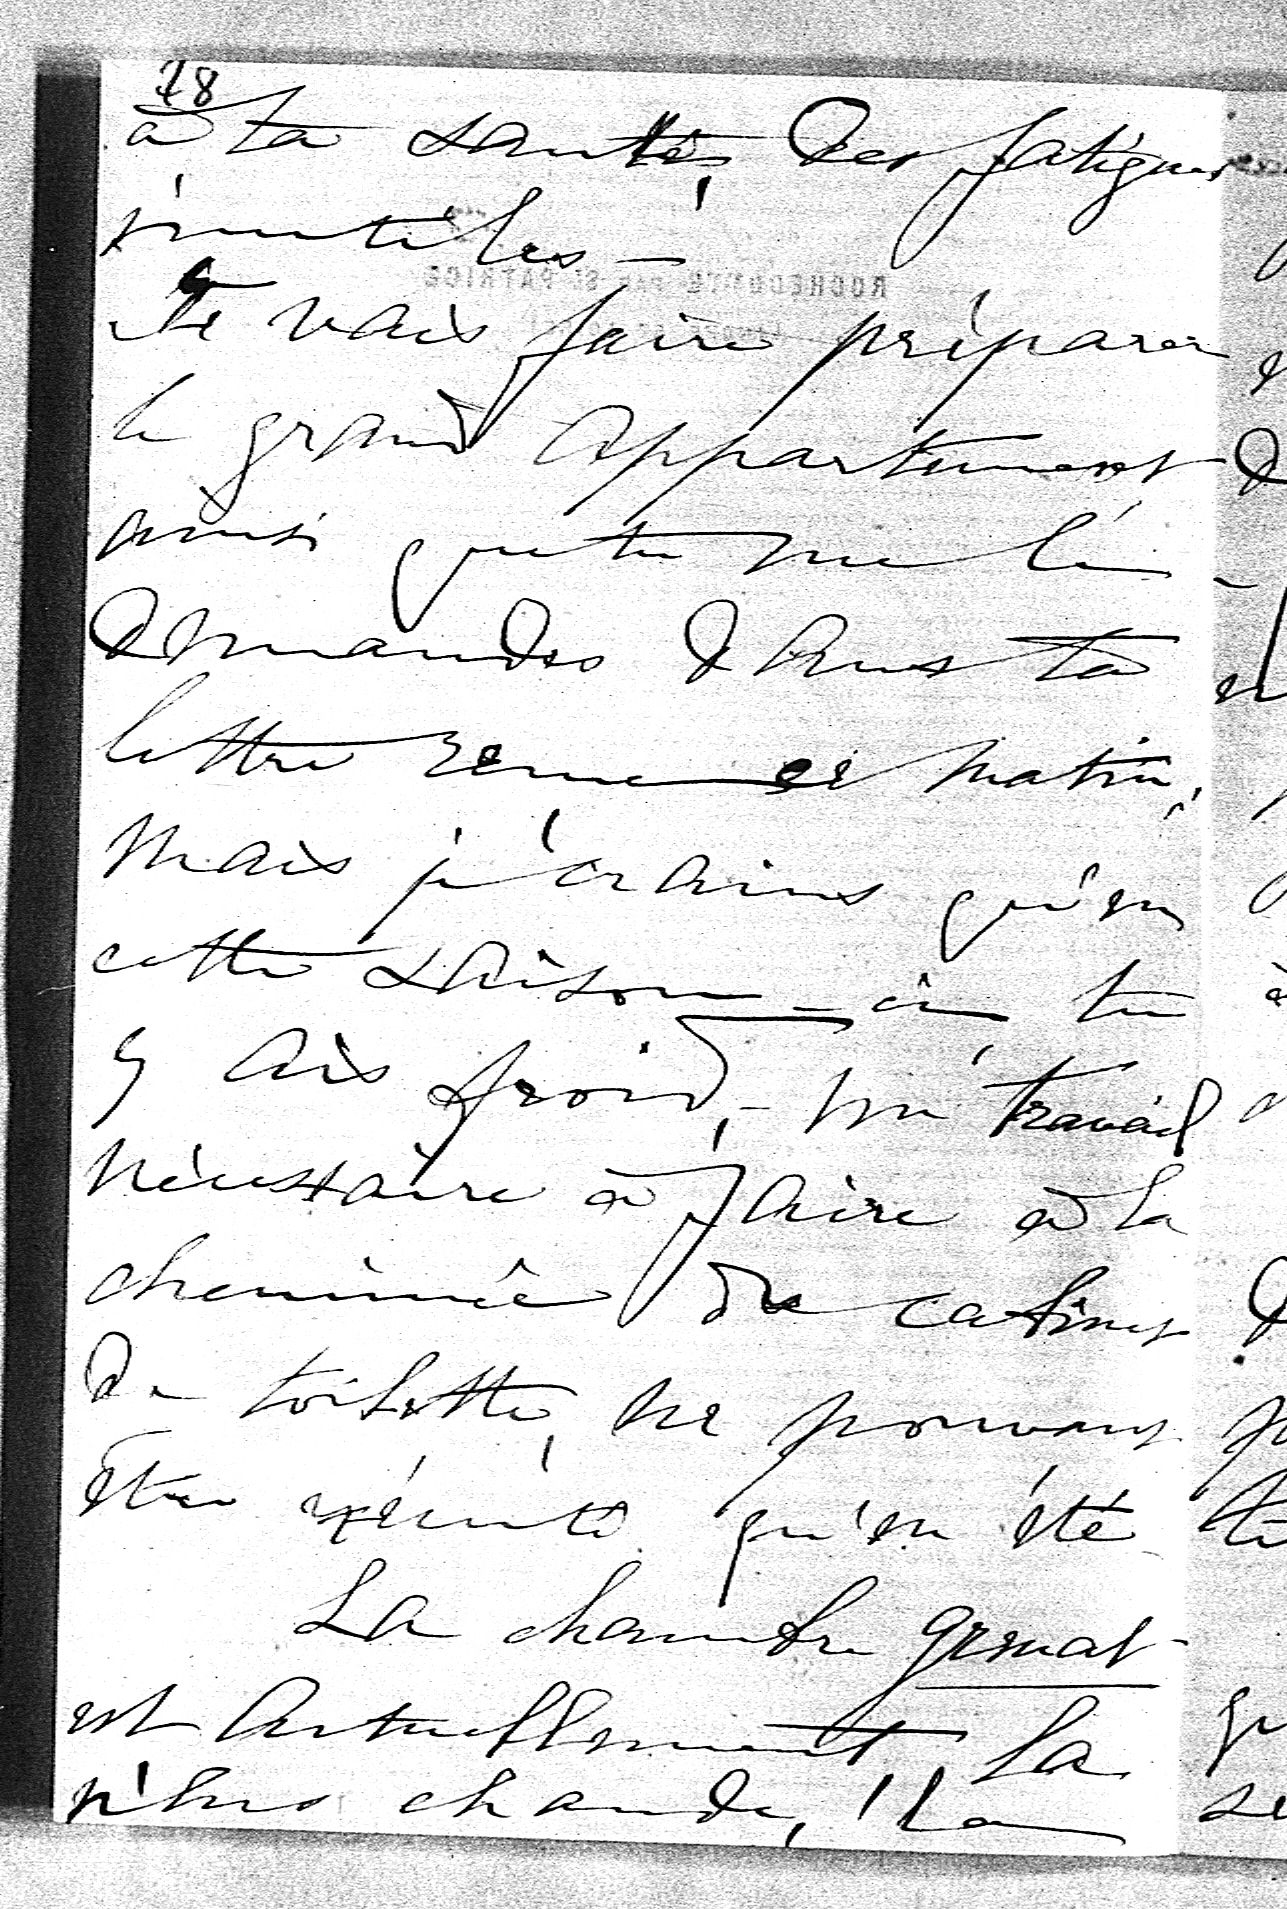 78
à ta santé, des fatigues
inutiles —
Je vais faire préparer
le grand appartement
ainsi que tu me le
demandes dans ta
lettre reçue ce matin,
mais je crains qu'en
cette saison-ci, tu
y ais froid, — un travail
nécessaire à faire à la
cheminée du cabinet
de toilette, ne pouvant
être exécuté qu'en été
La chambre grenat
est actuellement la
plus chaude, la